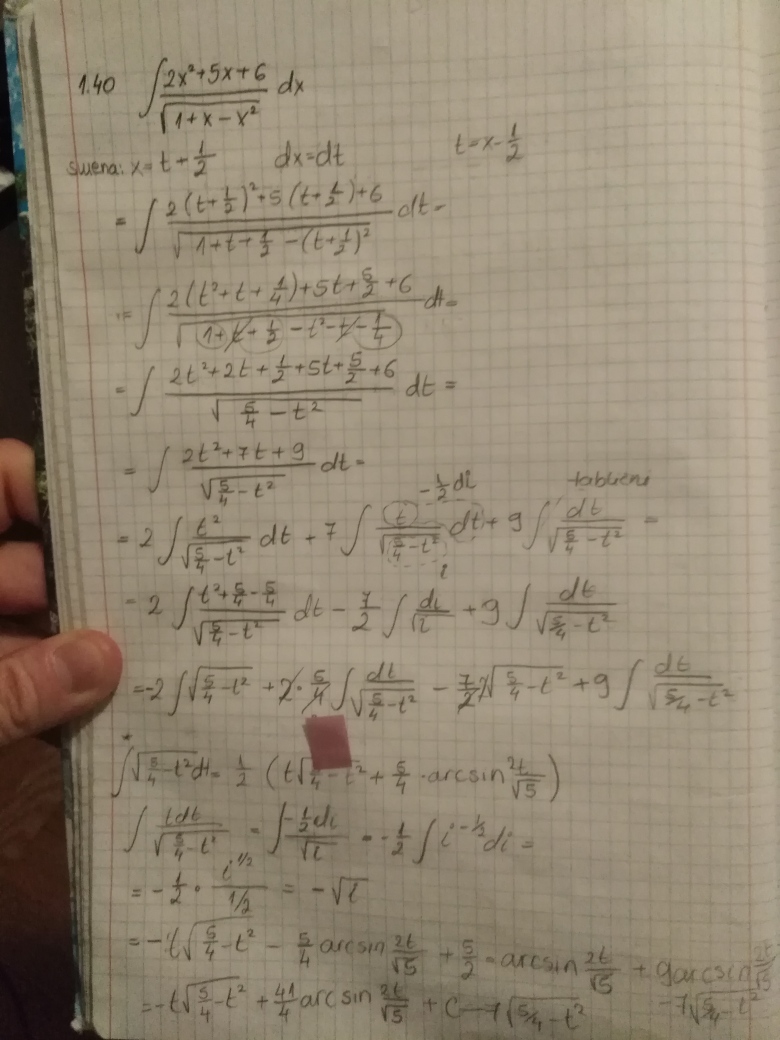 1.40 ∫ (2x²+5x+6)/√(1+x−x²) dx
smena: x = t + 1/2 dx = dt t = x − 1/2
= ∫ (2(t+1/2)²+5(t+1/2)+6)/√(1+t+1/2 −(t+1/2)²) dt =
= ∫ (2(t²+t+1/4)+5t+5/2+6)/√(1+t+1/2 −t²−t−1/4) dt =
= ∫ (2t²+2t+1/2+5t+5/2+6)/√(5/4 − t²) dt =
= ∫ (2t²+7t+9)/√(5/4−t²) dt =
−1/2 di
= 2 ∫ t²/√(5/4−t²) dt + 7 ∫ t/√(5/4−t²) dt + 9 ∫ dt/√(5/4−t²) =
i
= 2 ∫ (t²+5/4−5/4)/√(5/4−t²) dt − 7/2 ∫ di/√i + 9 ∫ dt/√(5/4−t²)
= −2 ∫ √(5/4−t²) + 2·5/4 ∫ dt/√(5/4−t²) − 7/2 2√(5/4−t²) + 9 ∫ dt/√(5/4−t²)
* ∫ √(5/4−t²) dt = 1/2 (t√(5/4−t²) + 5/4 · arcsin 2t/√5)
∫ tdt/√(5/4−t²) = ∫ −1/2 di/√i = −1/2 ∫ i^(−1/2) di =
= −1/2 · i^(1/2)/(1/2) = −√i
= −t√(5/4−t²) − 5/4 arcsin 2t/√5 + 5/2 · arcsin 2t/√5 + 9arcsin 2t/√5 −7√(5/4−t²)
= −t√(5/4−t²) + 41/4 arcsin 2t/√5 + C −7√(5/4−t²)